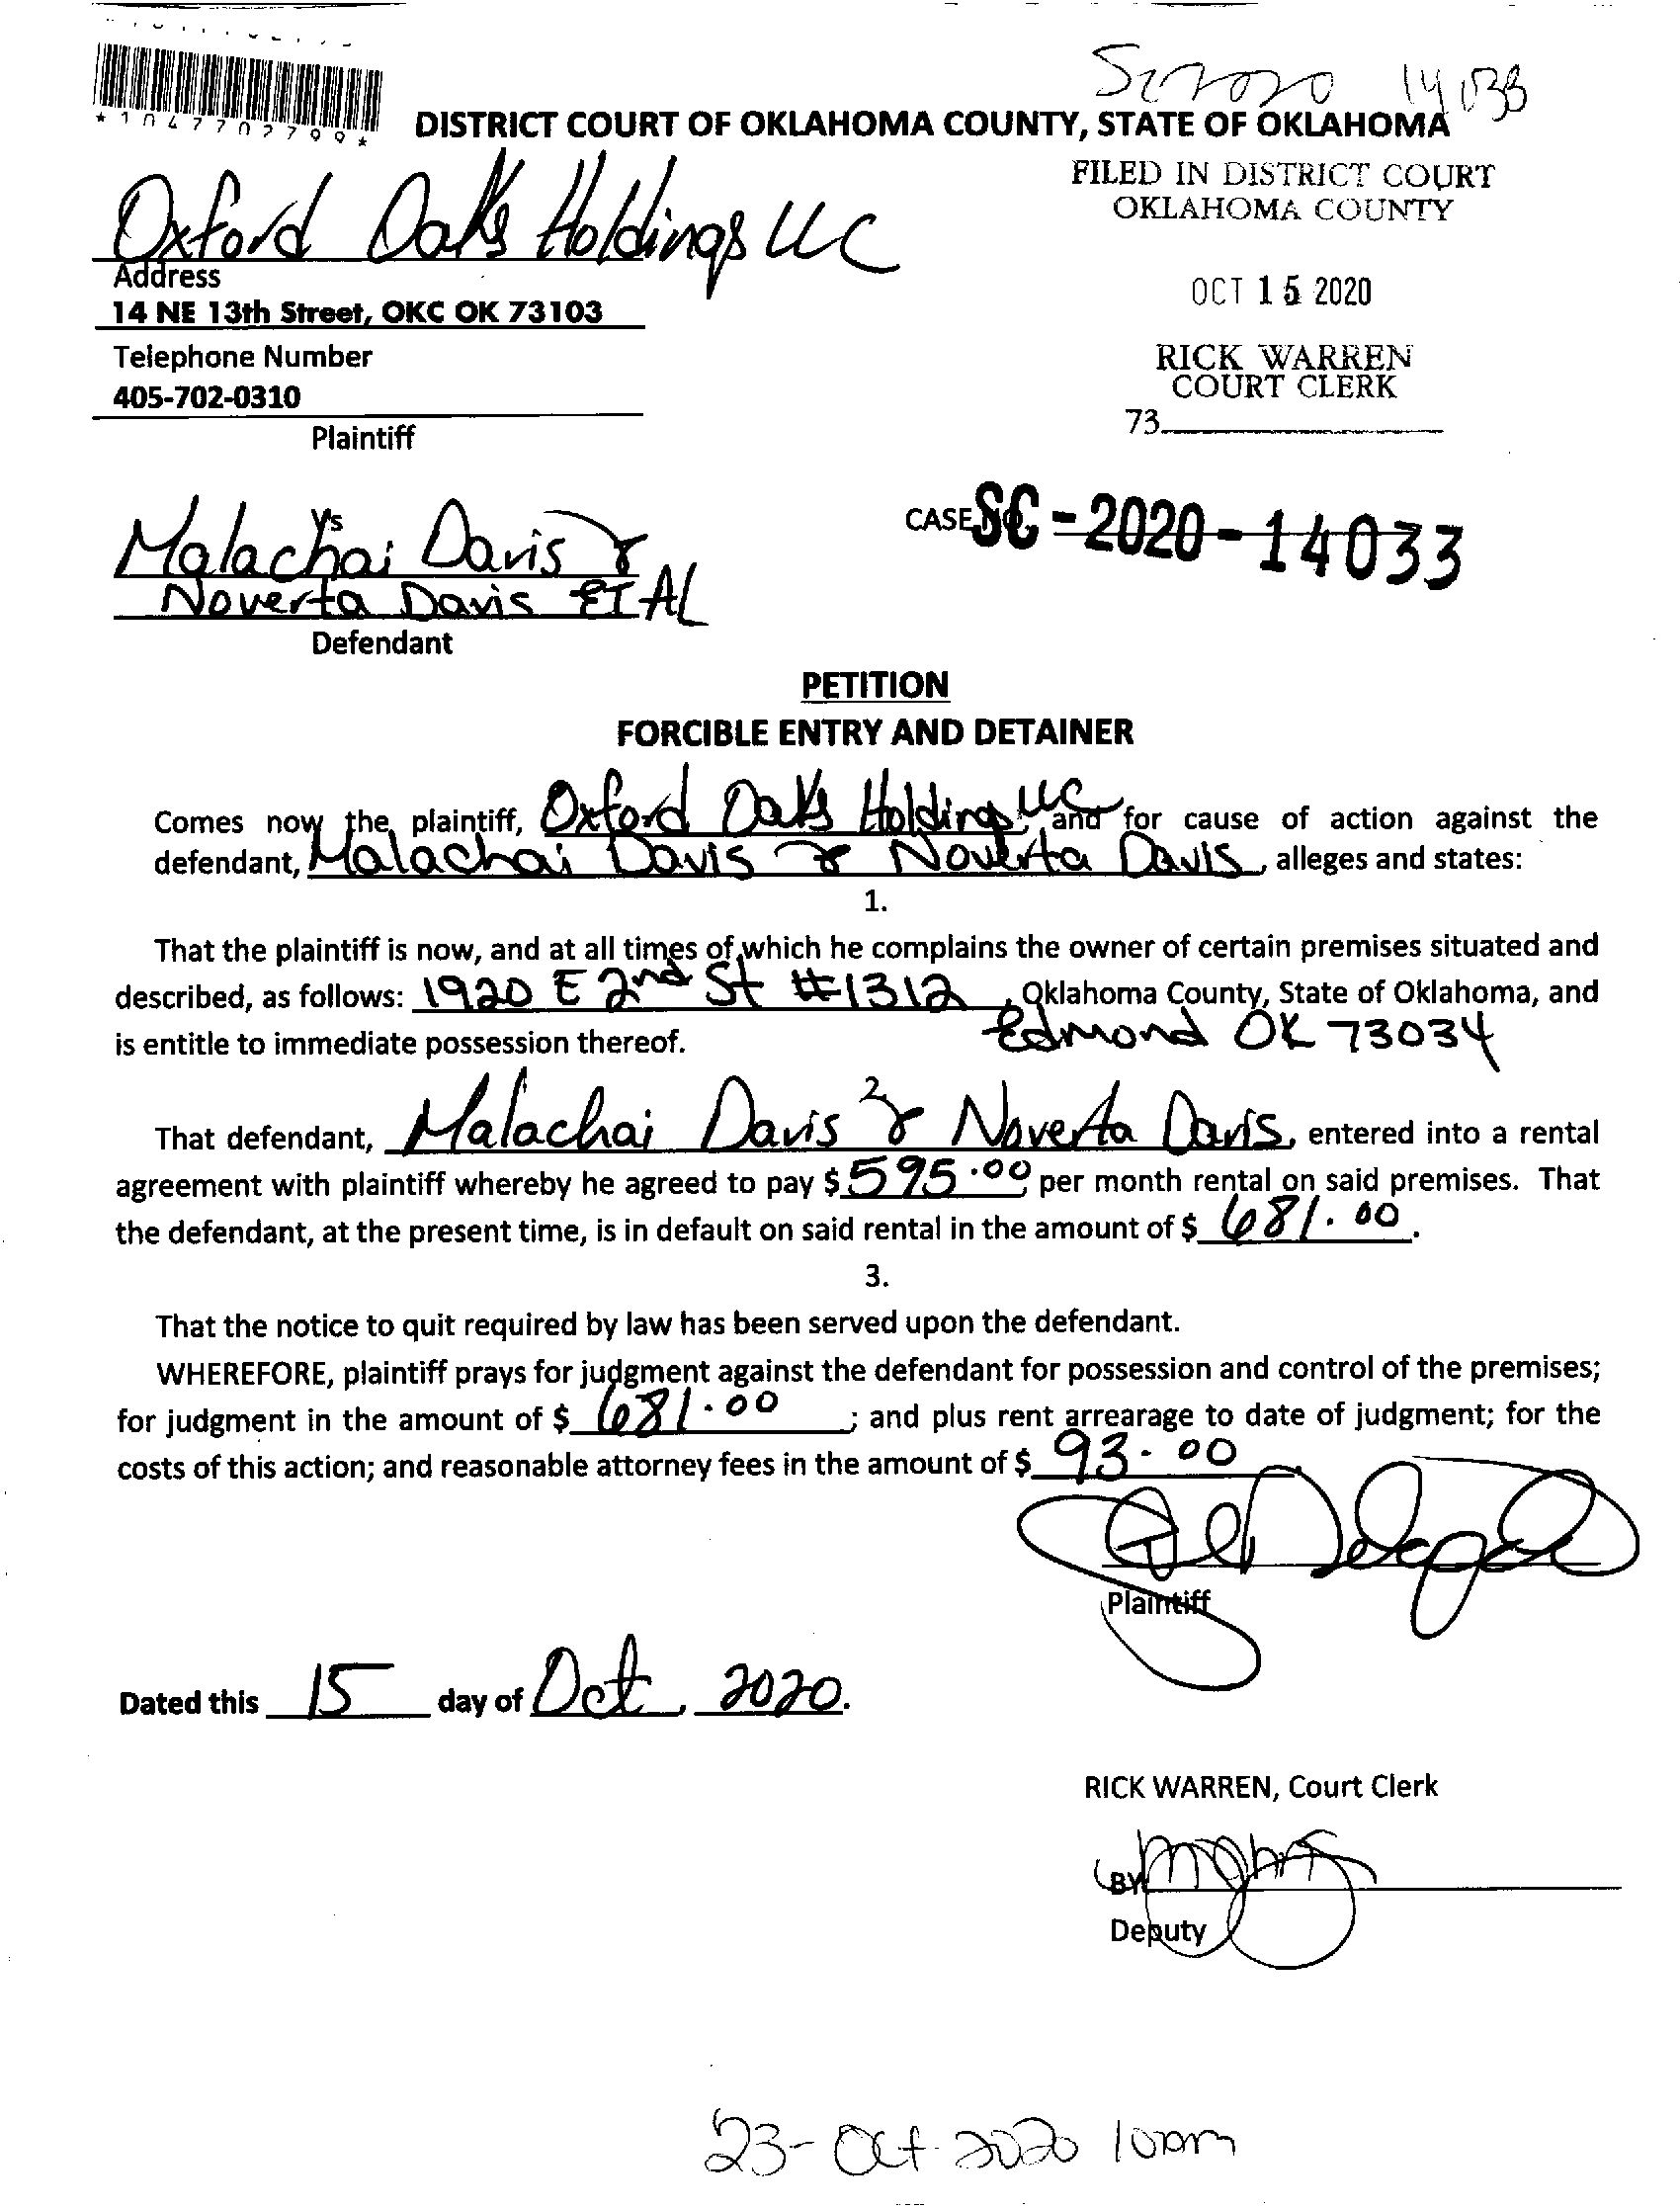 SC2020 14033
*1047702799*
DISTRICT COURT OF OKLAHOMA COUNTY, STATE OF OKLAHOMA
FILED IN DISTRICT COURT
OKLAHOMA COUNTY
Oxford Oaks Holdings LLC
Address
14 NE 13th Street, OKC OK 73103
OCT 15 2020
Telephone Number
405-702-0310
RICK WARREN
COURT CLERK
73
Plaintiff
Vs
CASE NO. SC-2020-14033
Malachai Davis &
Noverta Davis ET AL
Defendant
PETITION
FORCIBLE ENTRY AND DETAINER
Comes now the plaintiff, Oxford Oaks Holdings LLC and for cause of action against the
defendant, Malachai Davis & Noverta Davis, alleges and states:
1.
That the plaintiff is now, and at all times of which he complains the owner of certain premises situated and
described, as follows: 1920 E 2nd St #1312, Oklahoma County, State of Oklahoma, and
Edmond OK 73034
is entitle to immediate possession thereof.
2.
That defendant, Malachai Davis & Noverta Davis, entered into a rental
agreement with plaintiff whereby he agreed to pay $595.00 per month rental on said premises. That
the defendant, at the present time, is in default on said rental in the amount of $ 681.00.
3.
That the notice to quit required by law has been served upon the defendant.
WHEREFORE, plaintiff prays for judgment against the defendant for possession and control of the premises;
for judgment in the amount of $ 681.00; and plus rent arrearage to date of judgment; for the
costs of this action; and reasonable attorney fees in the amount of $ 93.00
Plaintiff
Dated this 15 day of Oct, 2020.
RICK WARREN, Court Clerk
BY
Deputy
23-Oct-2020 10pm